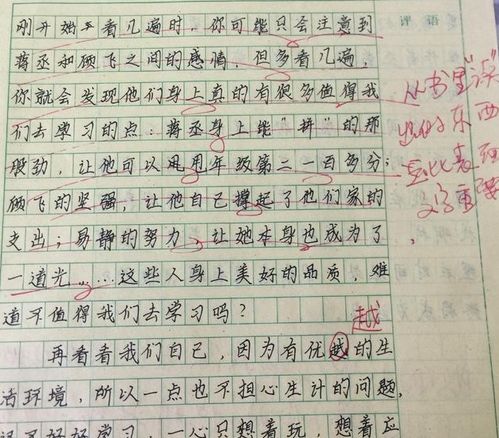 刚开始去看几遍时，你可能只会注意到
蒋丞和顾飞之间的感情，但多看几遍，
你就会发现他们身上真的有很多值得我
们去学习的点：蒋丞身上能"拼"的那
股劲，让他可以甩甩年级第二一百多分；
顾飞的坚强，让他自己撑起了他们家的
支出；易静的努力，让她本身也成为了
一道光……这些人身上美好的品质，难
道不值得我们去学习吗？
越
再看看我们自己，因为有优越的生
活环境，所以一点也不担心生计的问题，
好好学习，一心只想着玩，想着应
评语
从书里"读"
出的东西
会比表面
更重要